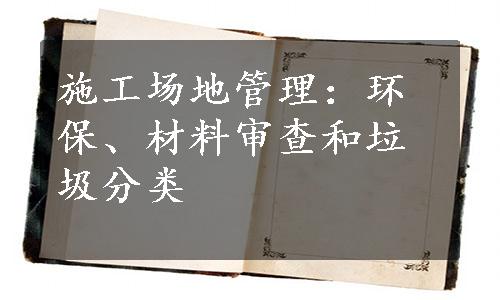 施工场地管理：环
保、材料审查和垃
圾分类